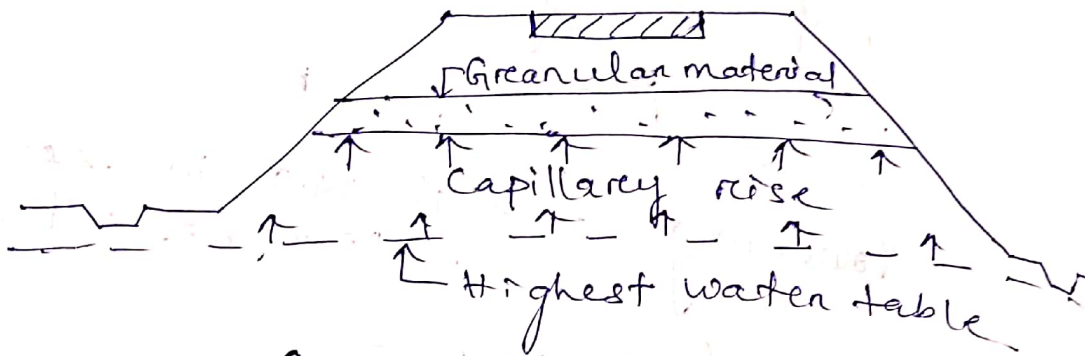 Greanular material
Capillarey rise
Highest water table